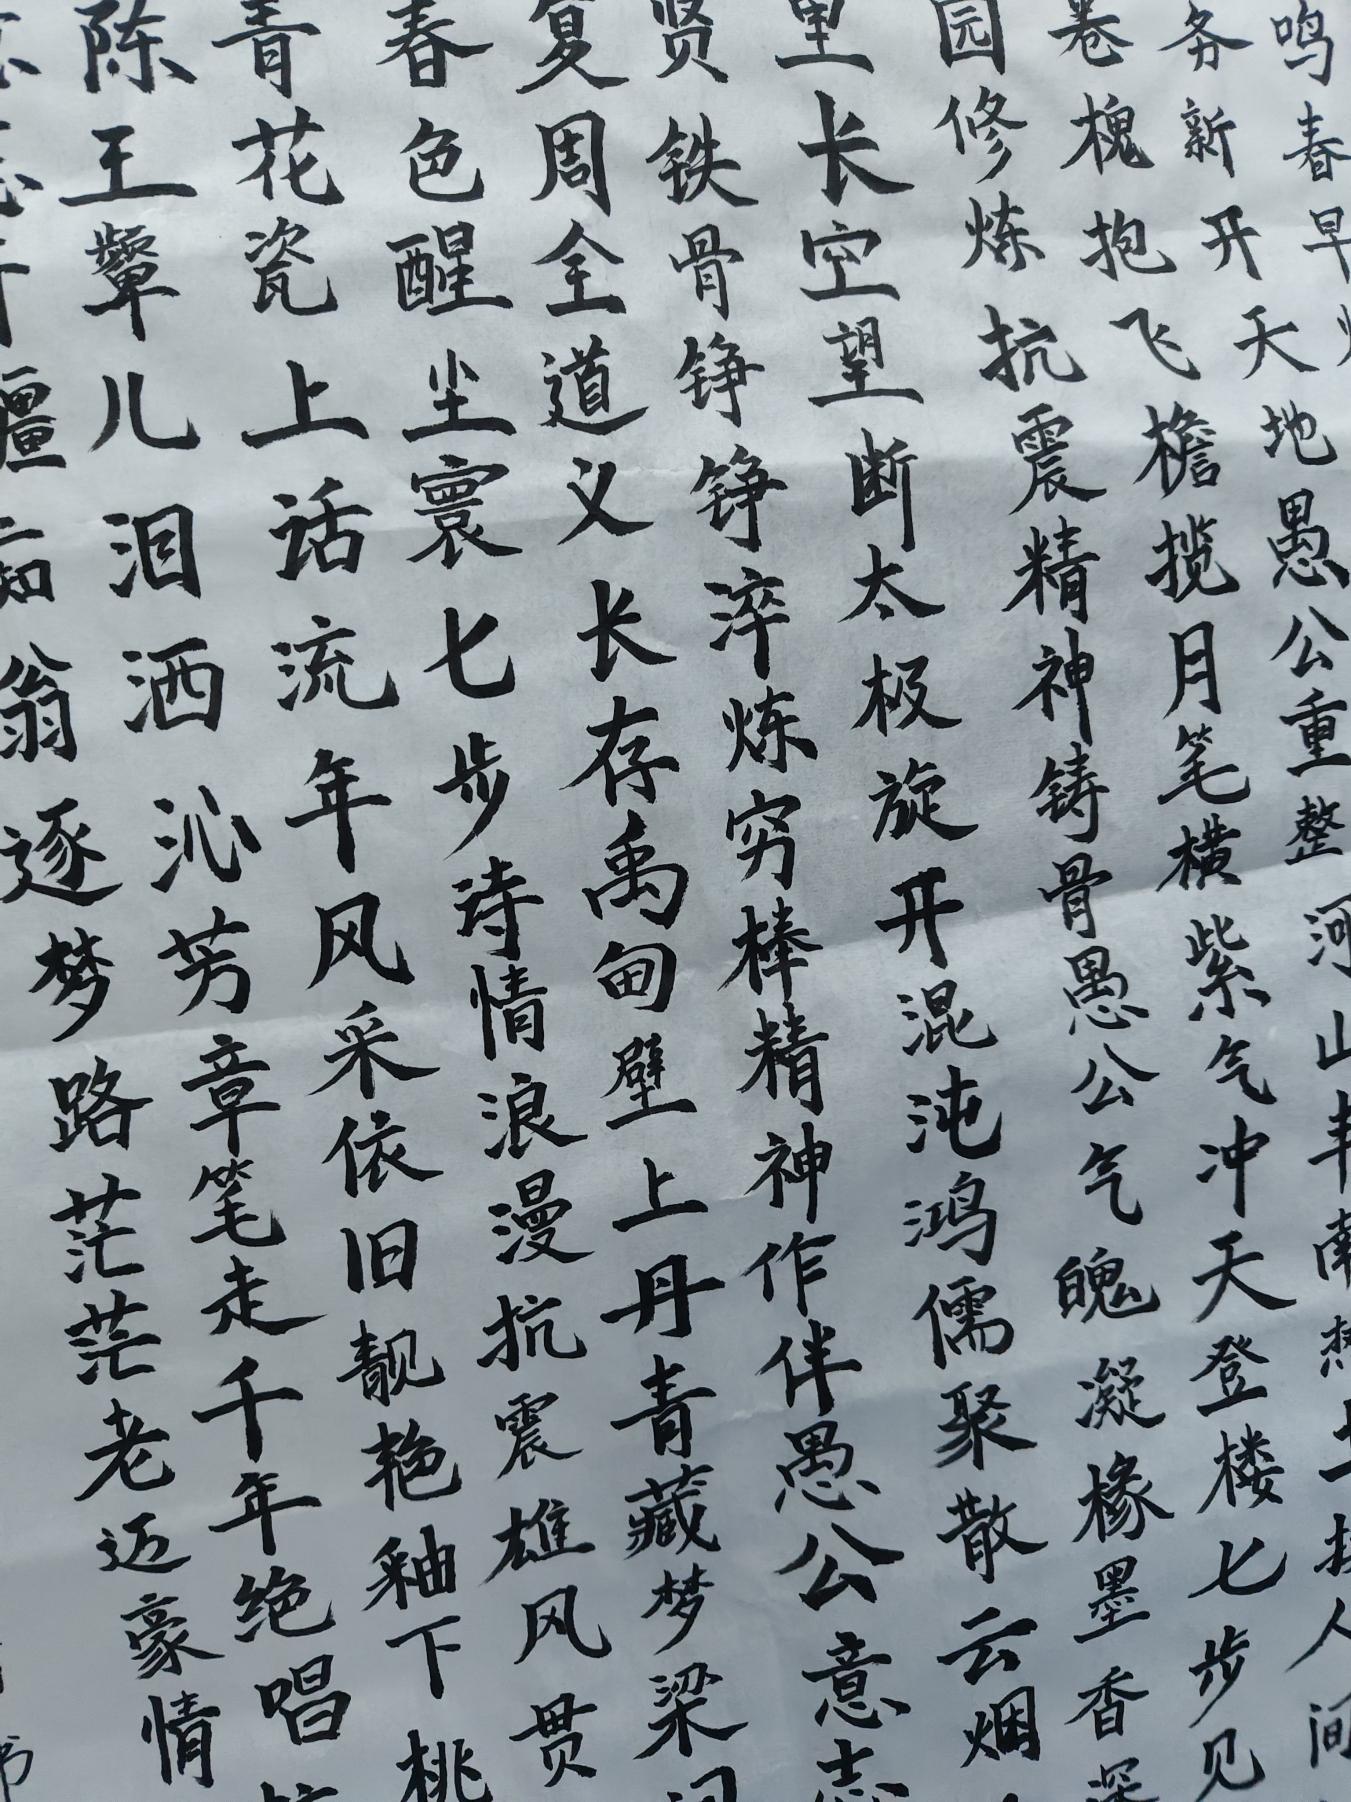 鸣春早
务新开天地愚公重整河山丰南热土换人间
卷槐抱飞檐揽月笔横紫气冲天登楼七步见
园修炼抗震精神铸骨愚公气魄凝椽墨香深
里长空望断太极旋开混沌鸿儒聚散云烟
贤铁骨铮铮淬炼穷棒精神作伴愚公意志
复周全道义长存禹甸壁上丹青藏梦梁
春色醒尘寰七步诗情浪漫抗震雄风贯
青花瓷上话流年风采依旧靓艳釉下桃
陈王颦儿泪洒沁芳章笔走千年绝唱
疆痴翁逐梦路茫茫老迈豪情
书